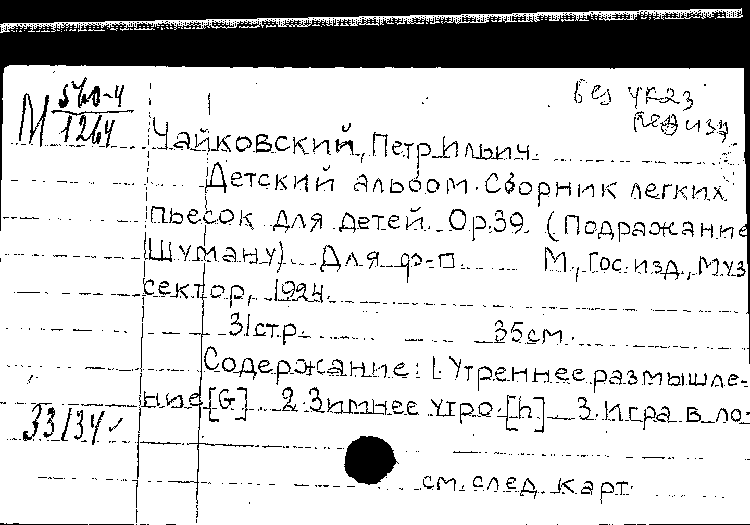 М 540-4
1264
без указ
редизд
Чайковский, Петр Ильич.
Детский альбом. Сборник легких
пьесок для детей. Op.39. (Подражание
Шуману). Для ф-п. М., Гос. изд., Муз
сектор, 1924.
31 стр. 35 см.
Содержание: 1. Утреннее размышле-
ние [G]. 2. Зимнее утро. [h]. 3. Игра в ло-
33134
см. след. карт.